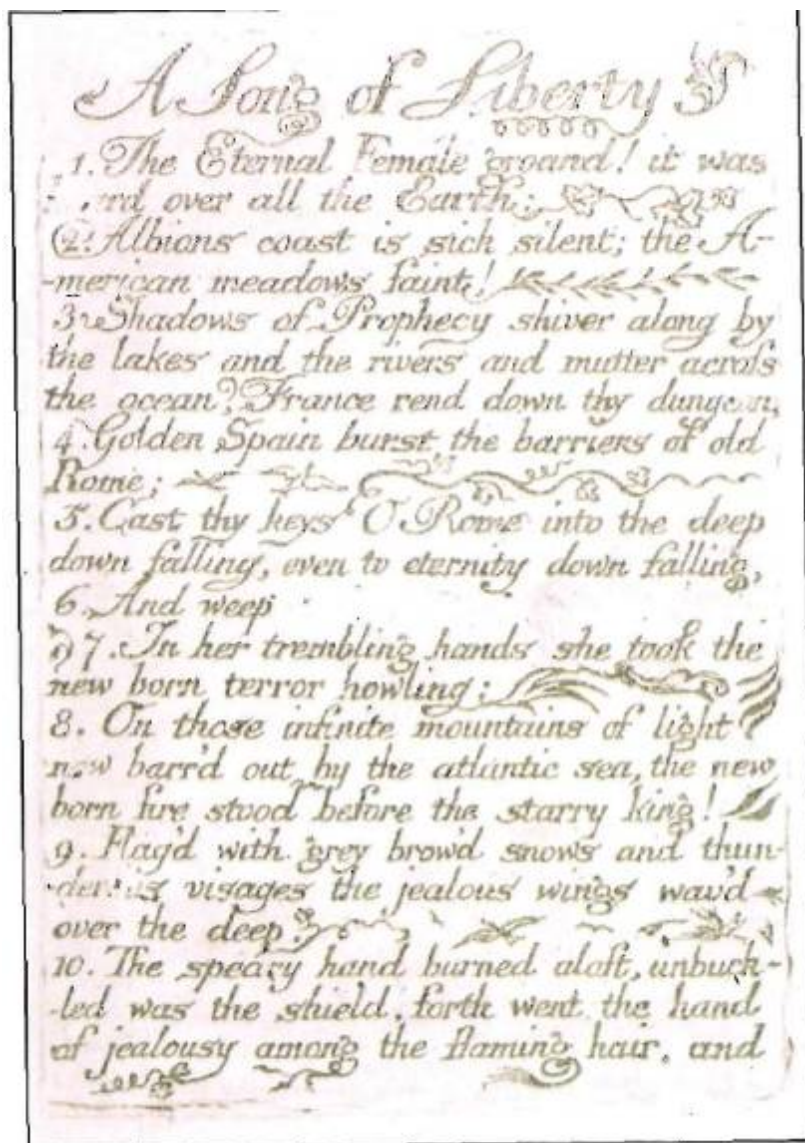 A Song of Liberty
1. The Eternal Female groand! it was
over all the Earth:
2. Albions coast is sick silent; the A-
-merican meadows faint!
3 Shadows of Prophecy shiver along by
the lakes and the rivers and mutter acroſs
the ocean? France rend down thy dungeon,
4. Golden Spain burst the barriers of old
Rome;
5. Cast thy keys O Rome into the deep
down falling, even to eternity down falling,
6. And weep
7. In her trembling hands she took the
new born terror howling:
8. On those infinite mountains of light
now barr'd out by the atlantic sea, the new
born fire stood before the starry king!
9. Flag'd with grey brow'd snows and thun-
visages the jealous wings wav'd
over the deep.
10. The speary hand burned aloft, unbuck-
-led was the shield, forth went the hand
of jealousy among the flaming hair, and